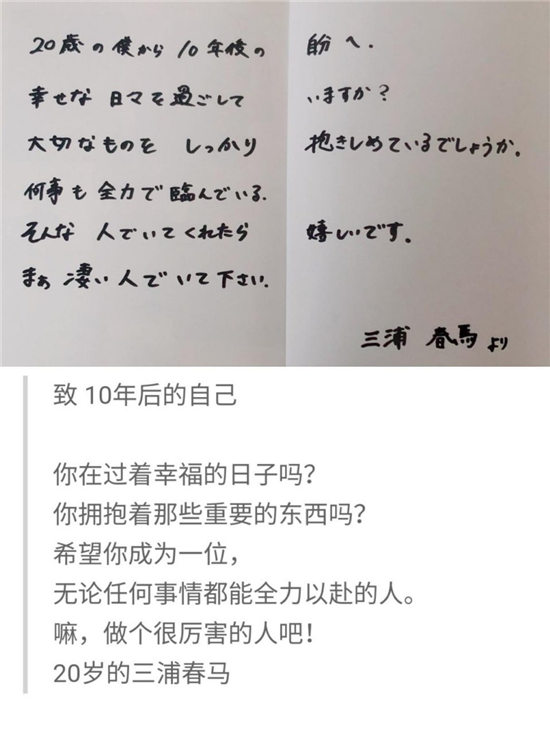 20歳の僕から10年後の自分へ.
幸せな日々を過ごしていますか?
大切なものをしっかり抱きしめているでしょうか.
何事も全力で臨んでいる.
そんな人でいてくれたら嬉しいです.
まぁ凄い人でいて下さい.
三浦春馬より
致 10年后的自己
你在过着幸福的日子吗?
你拥抱着那些重要的东西吗?
希望你成为一位,
无论任何事情都能全力以赴的人。
嘛，做个很厉害的人吧!
20岁的三浦春马